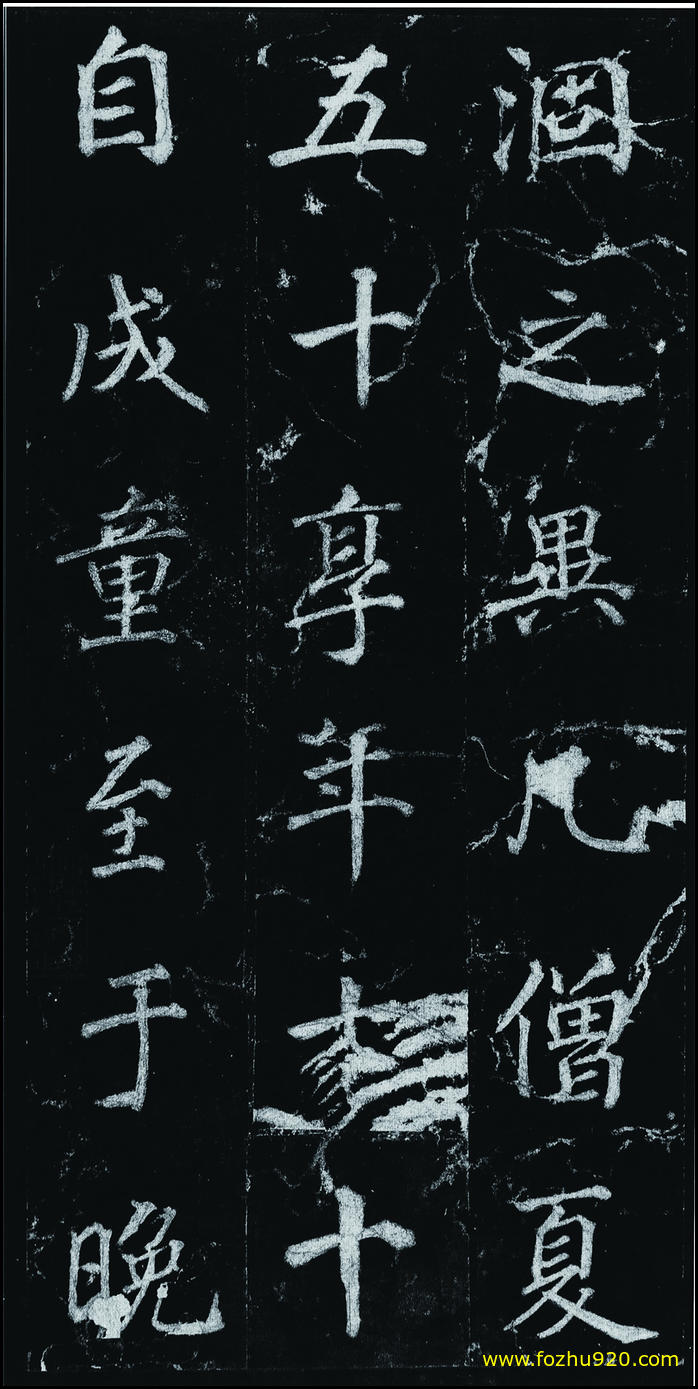 涸之異凡僧夏
五十享年十
自成童至于晚
www.fozhu920.com